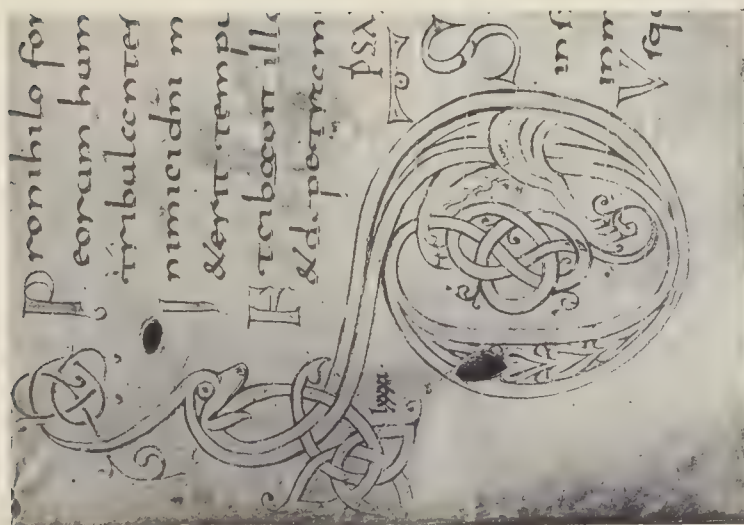 Pronihilo for
eorum hum
tribulantes
Inimicidni m
&erit tempu
Et cibauit illo
&depetra m
PSA
lxxxi
in
imm
Usqu